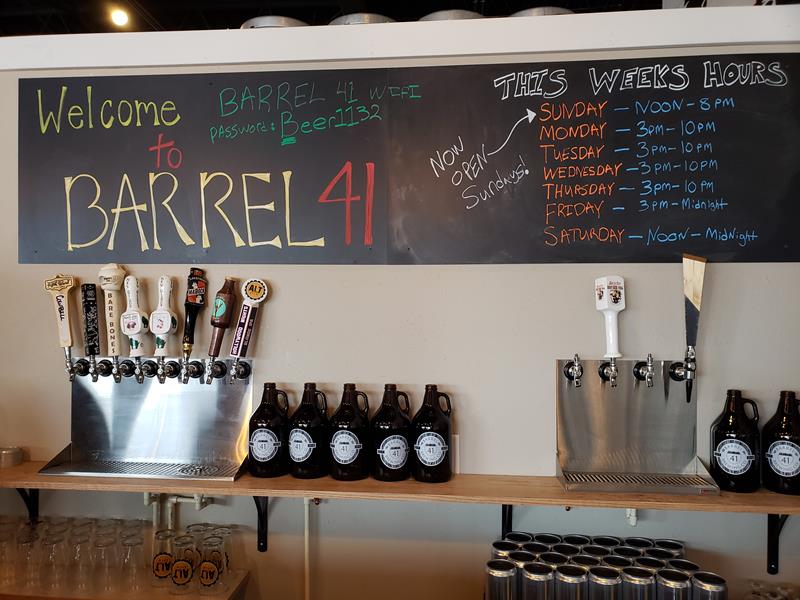 Welcome
to
BARREL 41
BARREL 41 WIFI
password: Beer1132
THIS WEEKS HOURS
NOW
OPEN
Sundays!
SUNDAY - NOON - 8PM
MONDAY - 3PM - 10PM
TUESDAY - 3PM - 10PM
WEDNESDAY - 3PM - 10PM
THURSDAY - 3PM - 10PM
FRIDAY - 3PM - Midnight
SATURDAY - NOON - MidNight
BARE BONES
ALT
41
41
41
41
41
41
41
ALT
ALT
ALT